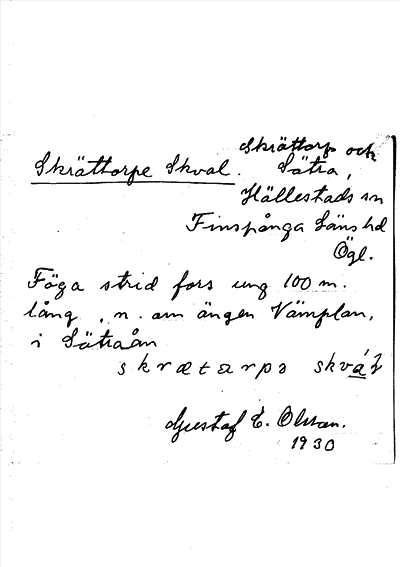 Skrättorpe Skval.
Skrättorp och
Sätra,
Hällestads sn
Finspånga Läns hd
Ögl.
Föga strid fors ung 100 m.
lång, n. om ängen Vämplan,
i Sätraån
skrætarpə skvál
Gustaf E. Olsson.
1930